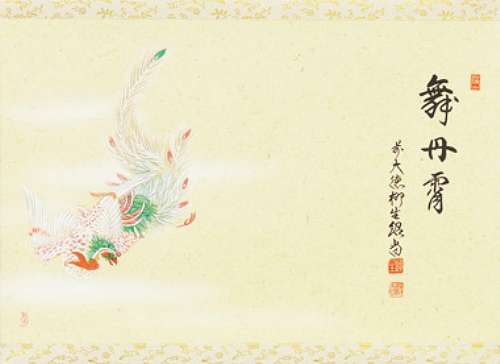 舞丹霄
前大徳柳生紹尚